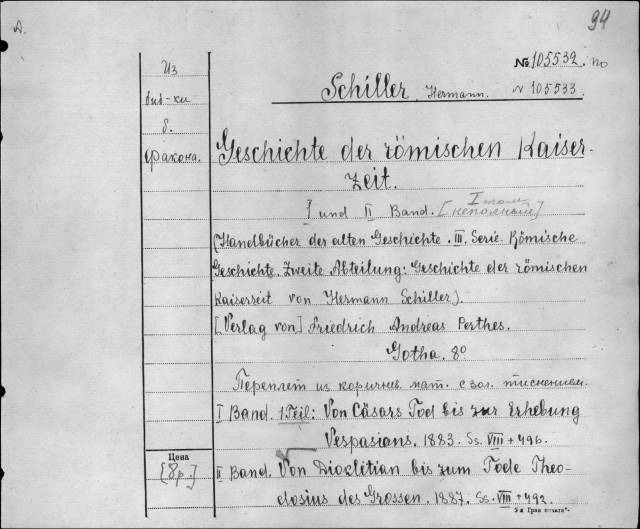 A.
94
Из
биб-ки
б.
Фракона.
№ 105532. по
№ 105533.
Schiller, Hermann.
Geschichte der römischen Kaiser-
zeit.
I und II Band. [I том неполный]
(Handbücher der alten Geschichte. III. Serie. Römische
Geschichte. Zweite Abteilung: Geschichte der römischen
Kaiserzeit von Hermann Schiller).
[Verlag von] Friedrich Andreas Perthes.
Gotha. 8º
Переплет из коричнев. мат. с зол. тиснением.
I Band. 1 Teil: Von Cäsars Tod bis zur Erhebung
Vespasians. 1883. Ss. VIII + 496.
Цена
[8 р.]
II Band. Von Diokletian bis zum Tode Theo-
dosius des Grossen. 1887. Ss. VIII + 492.